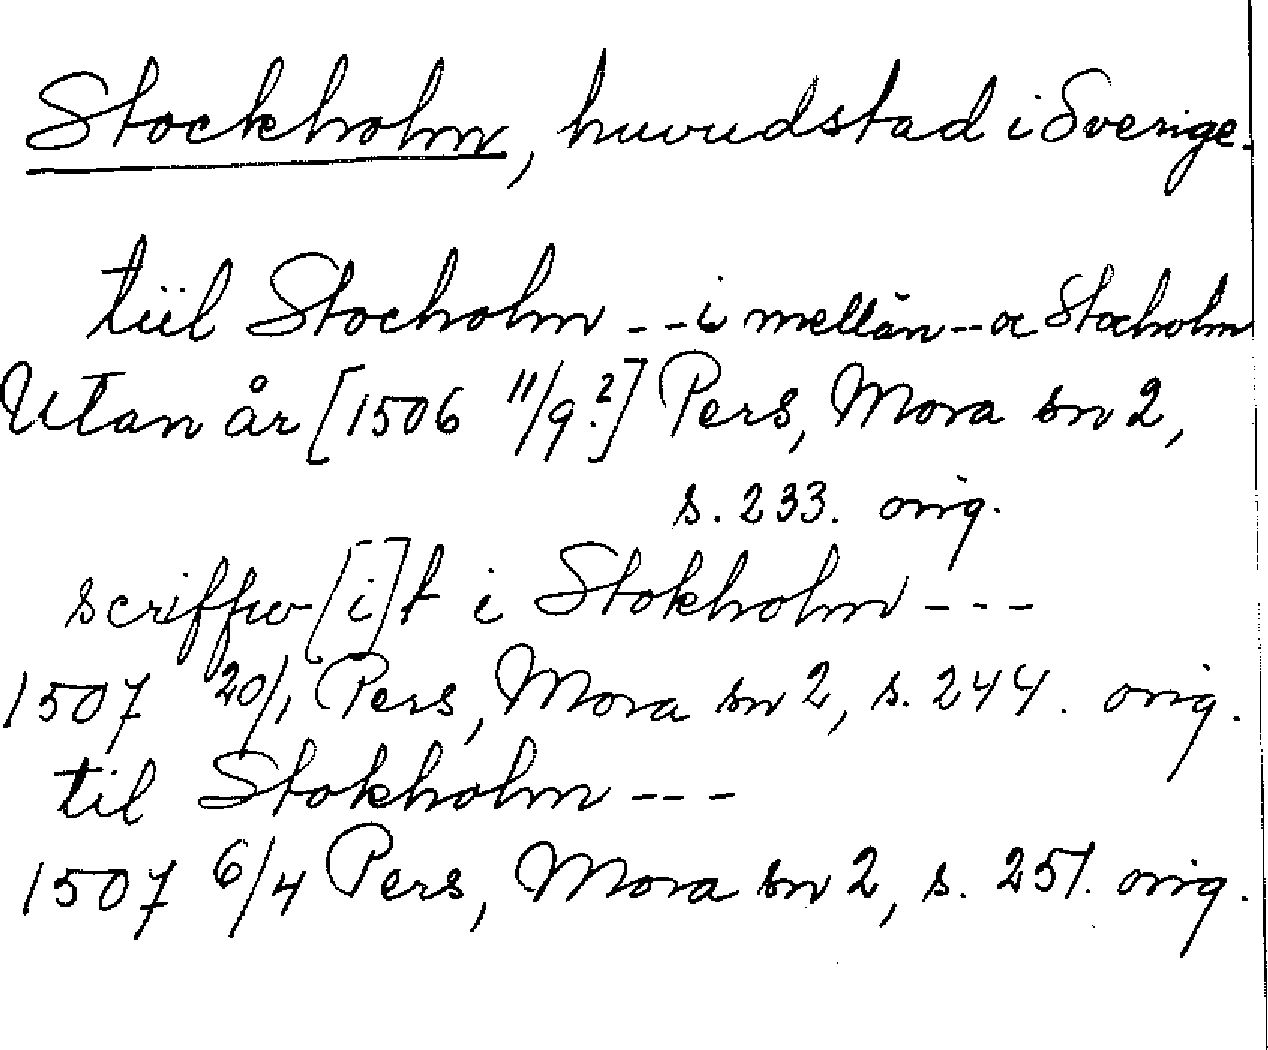 Stockholm, huvudstad i Sverige.
tiil Stocholm - - i mellan - - oc Stocholm
Utan år [1506 11/9.?] Pers, Mora sn 2,
s. 233. orig.
scriffw[i]t i Stokholm - - -
1507 20/1 Pers, Mora sn 2, s. 244. orig.
til Stokholm - - -
1507 6/4 Pers, Mora sn 2, s. 251. orig.